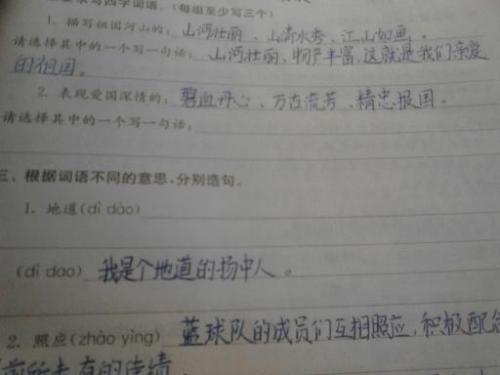 求写四字词语。(每组至少写三个)
1. 描写祖国河山的：山河壮丽、山清水秀、江山如画。
请选择其中的一个写一句话：山河壮丽、物产丰富,这就是我们亲爱
的祖国。
2. 表现爱国深情的：碧血丹心、万古流芳、精忠报国。
请选择其中的一个写一句话：
三、根据词语不同的意思,分别造句。
1. 地道(dì dào)
(dì dao) 我是个地道的扬中人。
2. 照应(zhào yìng) 蓝球队的成员们互相照应,积极配合
前所未有的成绩